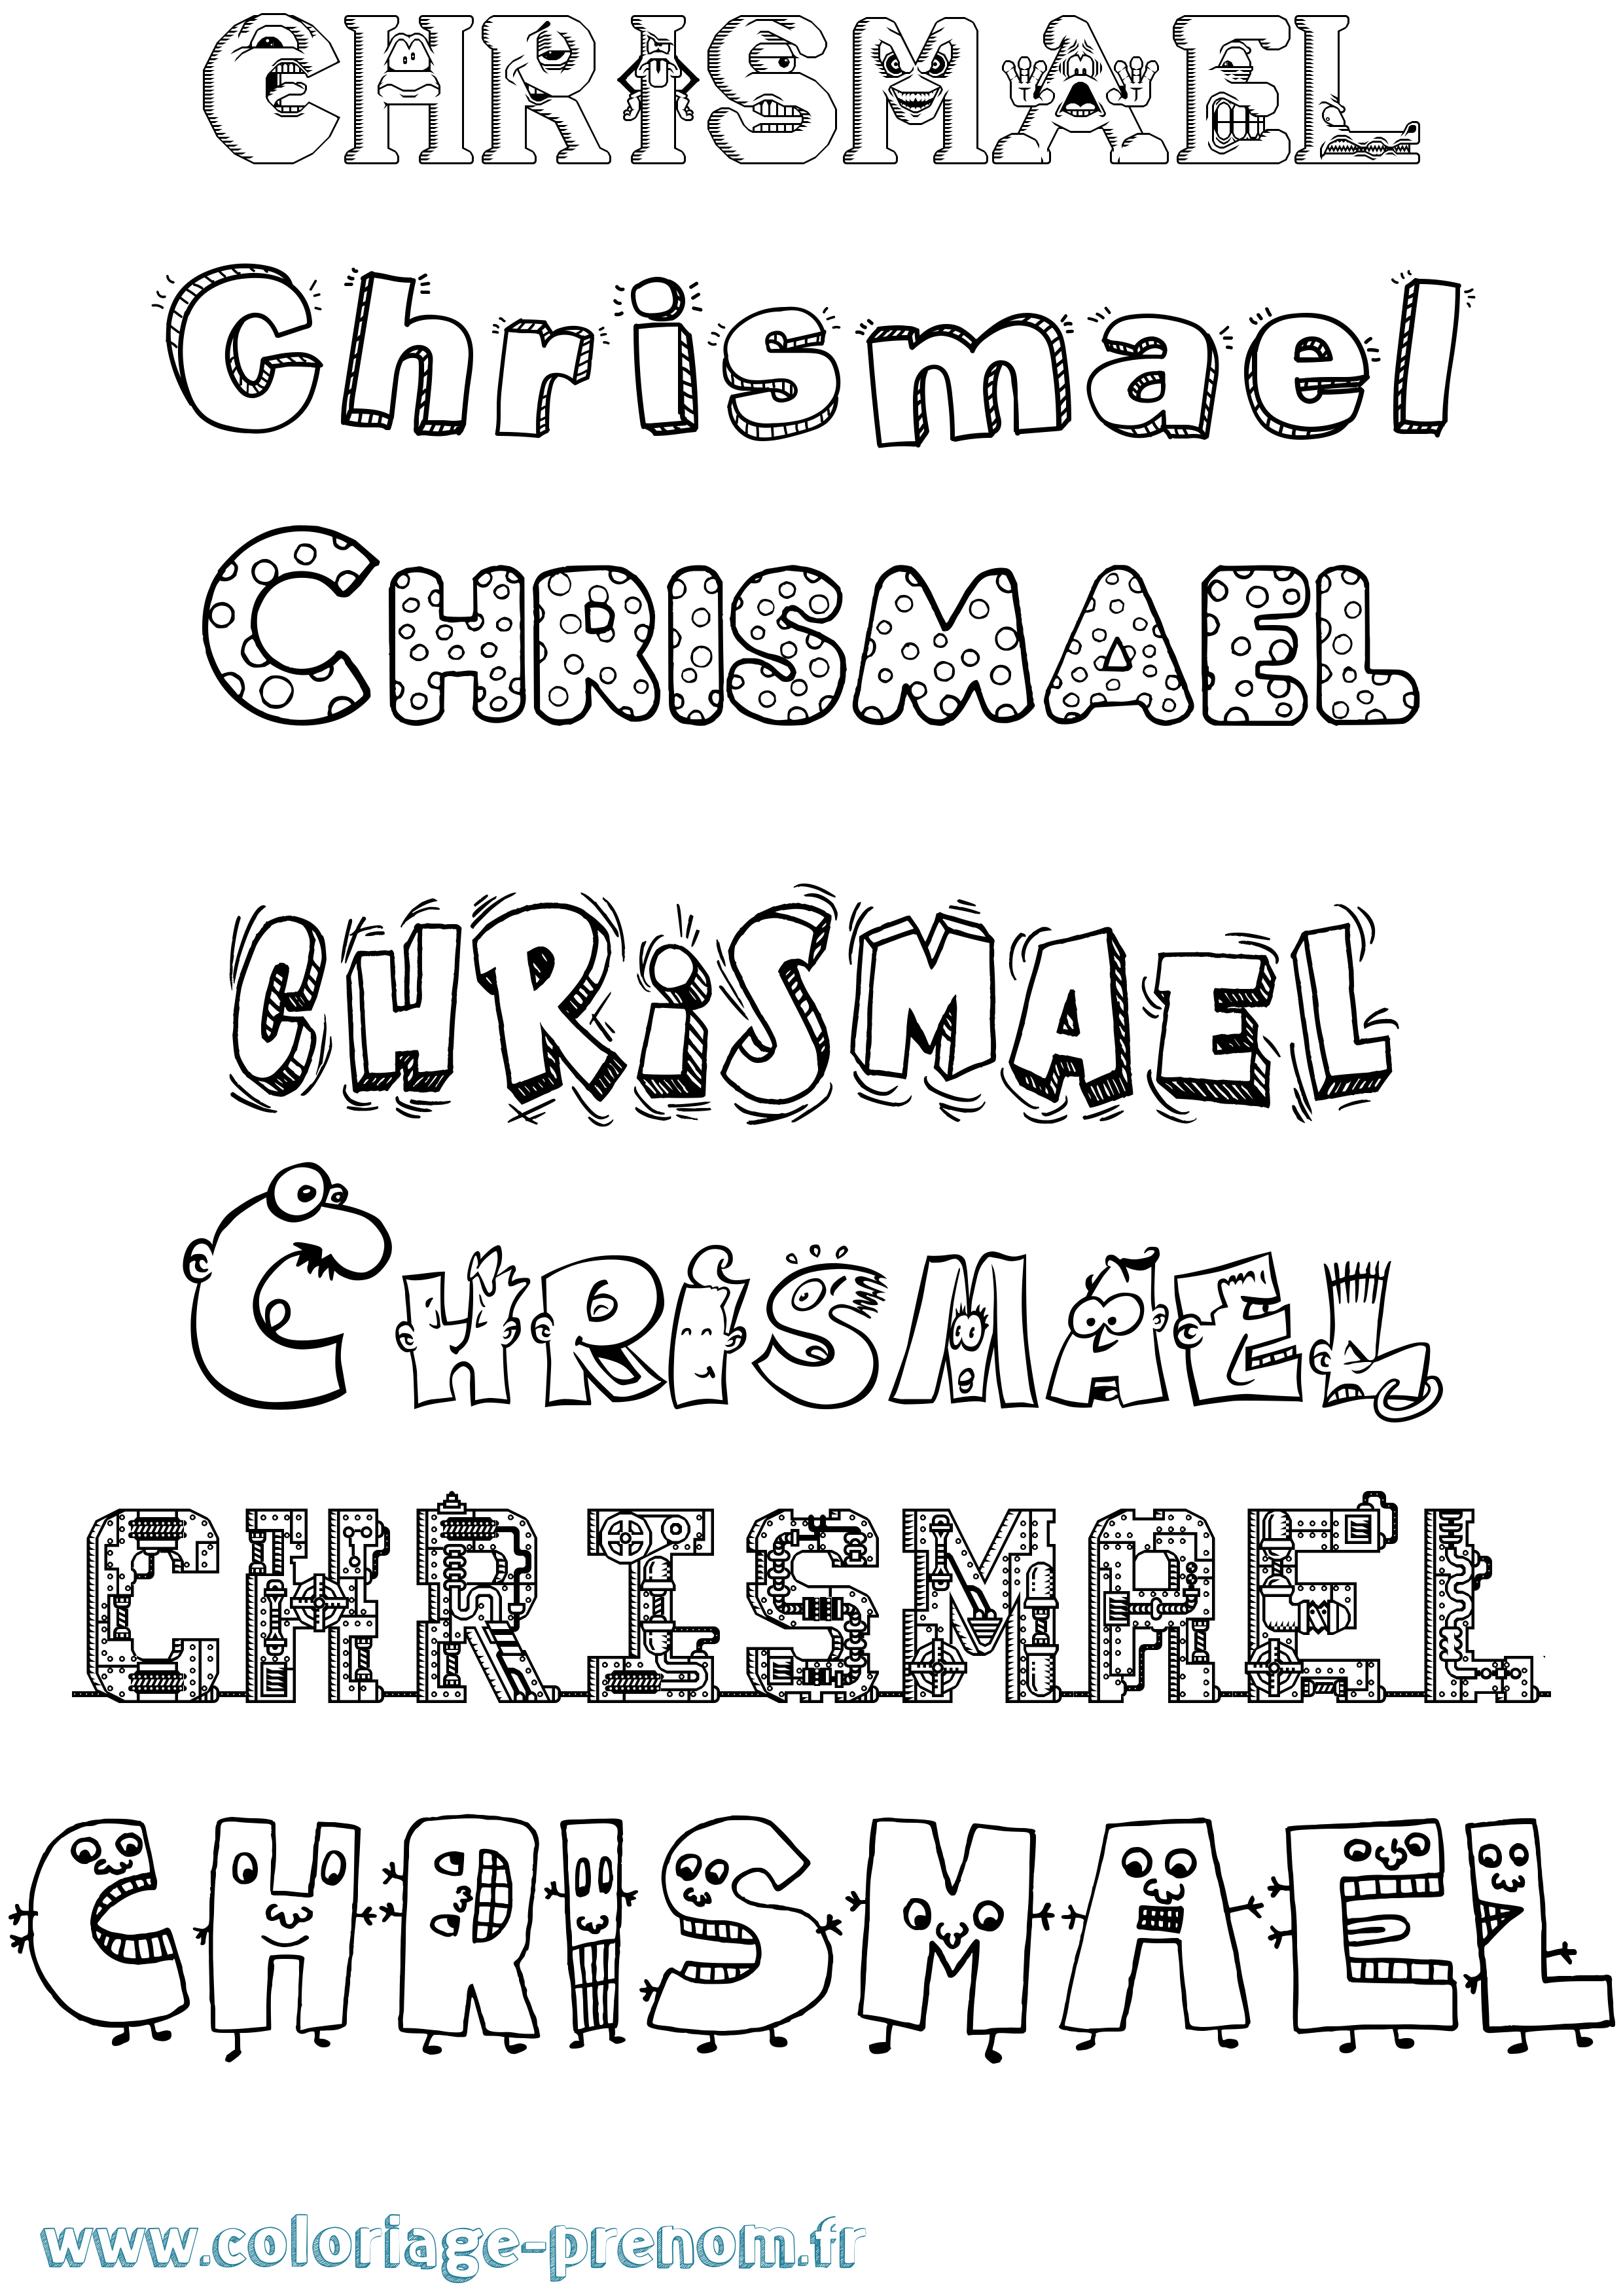 CHRISMAEL
Chrismael
CHRISMAEL
CHRiSMAEL
CHRiSMAEL
CHRISMAEL
CHRISMAEL
www.coloriage-prenom.fr